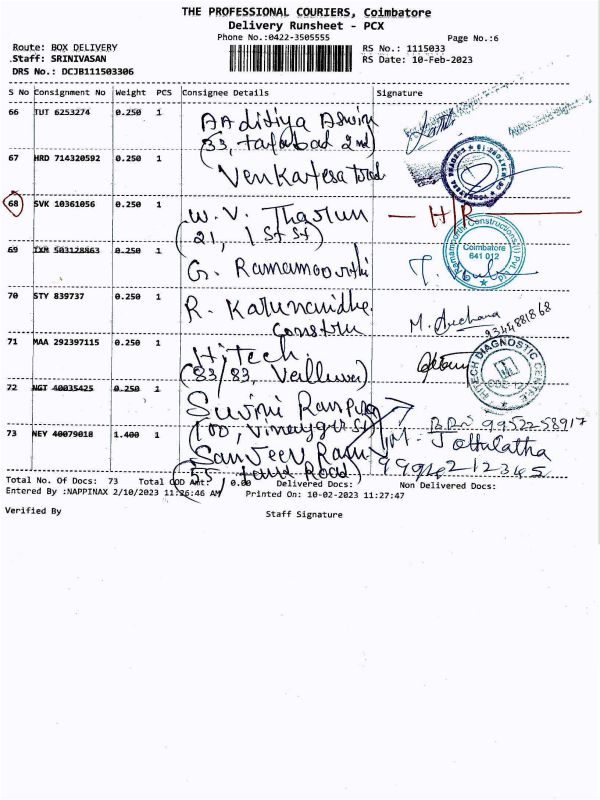 THE PROFESSIONAL COURIERS, Coimbatore
Delivery Runsheet - PCX
Phone No.:0422-3505555
Page No.:6
Route: BOX DELIVERY
Staff: SRINIVASAN
DRS No.: DCJB111503306
RS No.: 1115033
RS Date: 10-Feb-2023
S No Consignment No Weight PCS Consignee Details Signature
66 TUT 6253274 0.250 1 AAditiya Aswin
(33, 2nd)
67 HRD 714320592 0.250 1 Venkatesa
68 SVK 10361056 0.250 1 W. V. Tharun — H/R —
(21, 1 St St)
69 TXM 503128863 0.250 1 G. Ramamoorthi
Ramamoorthi Constructions(I) Pvt Ltd
Coimbatore
641 012
70 STY 839737 0.250 1 R. Karunanidhe M. Archana
Constru 9344881868
71 MAA 292397115 0.250 1 Hitech
(83/83, Valluvar)
HITECH DIAGNOSTIC CENTRE
72 NGT 40035425 0.250 1
(100, St) 99522-58917
73 NEY 40079018 1.400 1 Sanjeev Ram M. Jothilatha
Road) 99942-12345
Total No. Of Docs: 73 Total COD Amt: 0.00 Delivered Docs: Non Delivered Docs:
Entered By :NAPPINAX 2/10/2023 11:26:46 AM Printed On: 10-02-2023 11:27:47
Verified By
Staff Signature